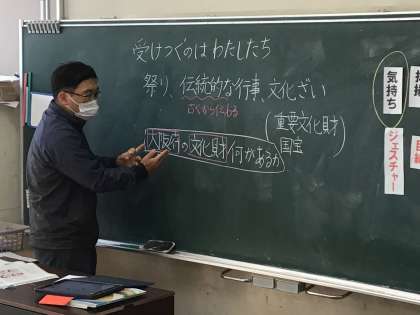 受けつぐのはわたしたち
祭り、伝統的な行事、文化ざい
古くから伝わる
(重要文化財
国宝)
大阪府の文化財何があるか
気持ち
ジェスチャー
目線